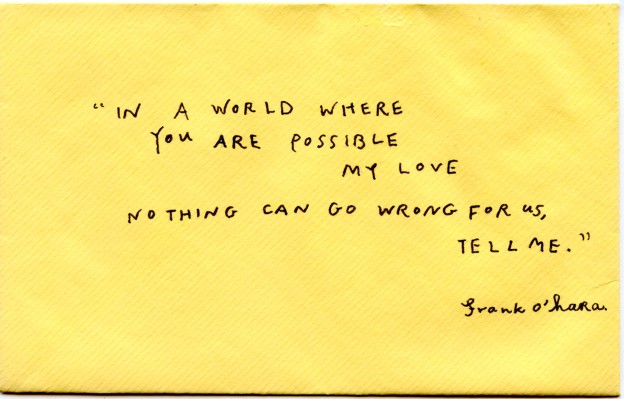 "IN A WORLD WHERE
YOU ARE POSSIBLE
MY LOVE
NOTHING CAN GO WRONG FOR US,
TELL ME."
Frank O'Hara.